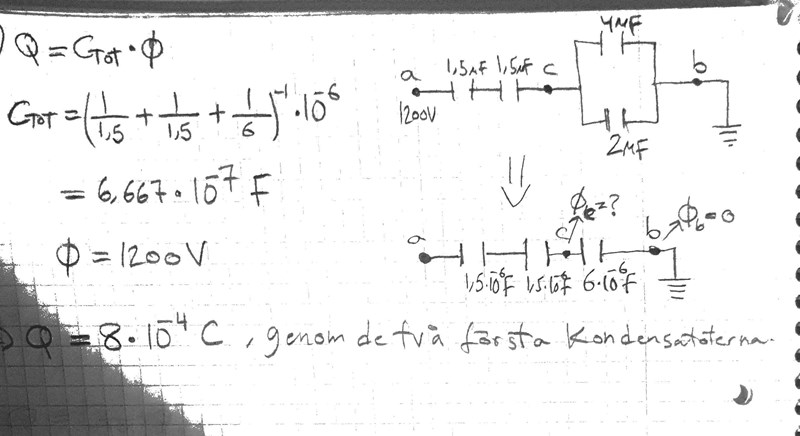 ) Q = CTot · Φ
CTot = (1/1,5 + 1/1,5 + 1/6)^-1 · 10^-6
= 6,667 · 10^-7 F
Φ = 1200V
) Q = 8 · 10^-4 C, genom de två första Kondensatoterna.
a 1,5μF 1,5μF c 4μF b
1200V
2μF
Φc=?
a c b Φb=0
1,5·10^-6F 1,5·10^-6F 6·10^-6F